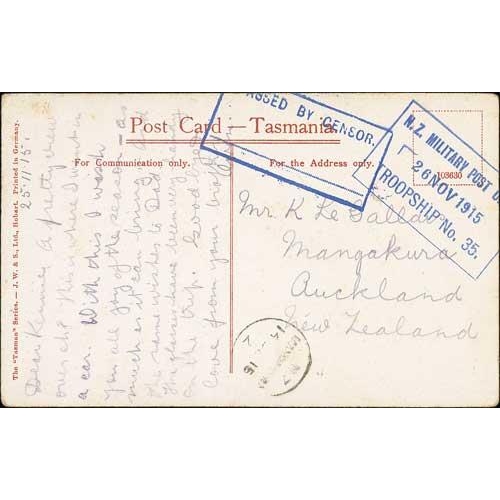 Post Card — Tasmania.
For Communication only.
For the Address only.
103630
PASSED BY CENSOR.
N.Z. MILITARY POST
26 NOV 1915
TROOPSHIP No. 35.
Mr. K Le Gallais
Mangakura
Auckland
New Zealand
The "Tasman" Series. — J. W. & S., Ltd., Hobart. Printed in Germany.
25/11/15.
Dear Kenny A pretty view
over eh? This is where I went in
a car. With this I wish
you all joy of the season - as
much as it can bring and
the same wishes to Dad
The glasses have been very handy
on the trip. Good
love from your brother